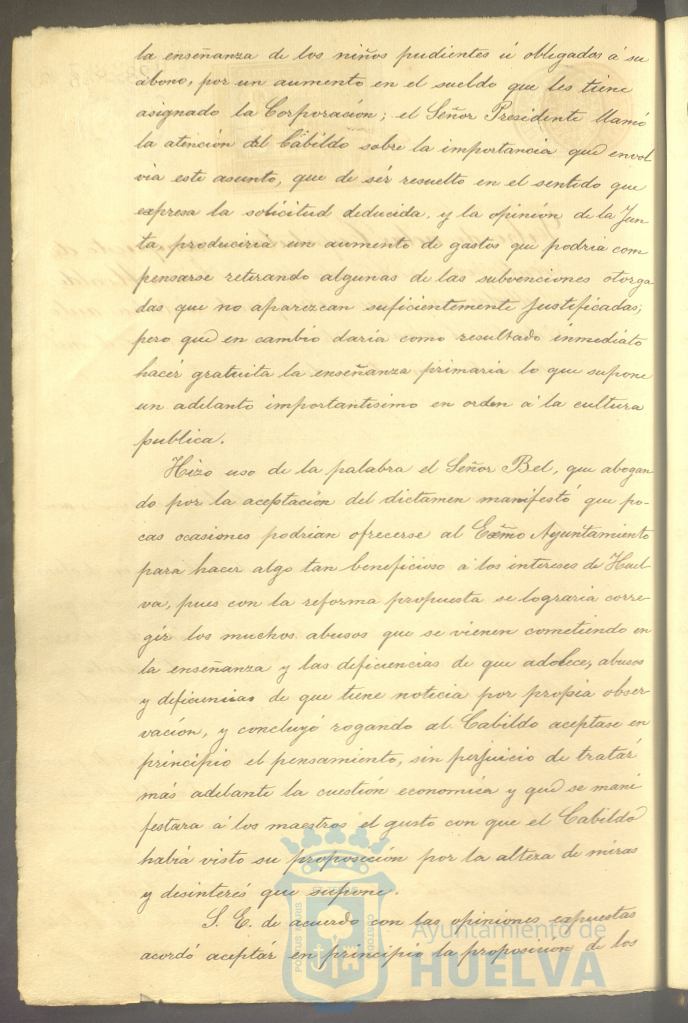 la enseñanza de los niños pudientes ú obligados á su
abono, por un aumento en el sueldo que les tiene
asignado la Corporación; el Señor Presidente llamó
la atención del Cabildo sobre la importancia que envol
via este asunto, que de sér resuelto en el sentido que
expresa la solicitud deducida, y la opinión de la Jun
ta, produciria un aumento de gastos que podria com
pensarse retirando algunas de las subvenciones otorga
das que no aparezcan suficientemente justificadas;
pero que en cambio daria como resultado inmediato
hacer gratuita la enseñanza primaria lo que supone
un adelanto importantisimo en orden á la cultura
publica.
Hizo uso de la palabra el Señor Bel, que abogan
do por la aceptación del dictamen manifestó que po-
cas ocasiones podrian ofrecerse al Exc̃mo Ayuntamiento
para hacer algo tan beneficioso á los intereses de Huel
va, pues con la reforma propuesta se lograria corre-
gir los muchos abusos que se vienen cometiendo en
la enseñanza y las deficiencias de que adolece, abusos
y deficiencias de que tiene noticia por propia obser-
vación, y concluyó rogando al Cabildo aceptase en
principio el pensamiento, sin perjuicio de tratar
más adelante la cuestión economica y que se mani
festara á los maestros el gusto con que el Cabildo
habia visto su proposición por la alteza de miras
y desinterés que supone.
S. E. de acuerdo con las opiniones expuestas
acordó aceptár en principio la proposición de los
PORTUS MARIS ET TERRAE CUSTODIA
Ayuntamiento de
HUELVA